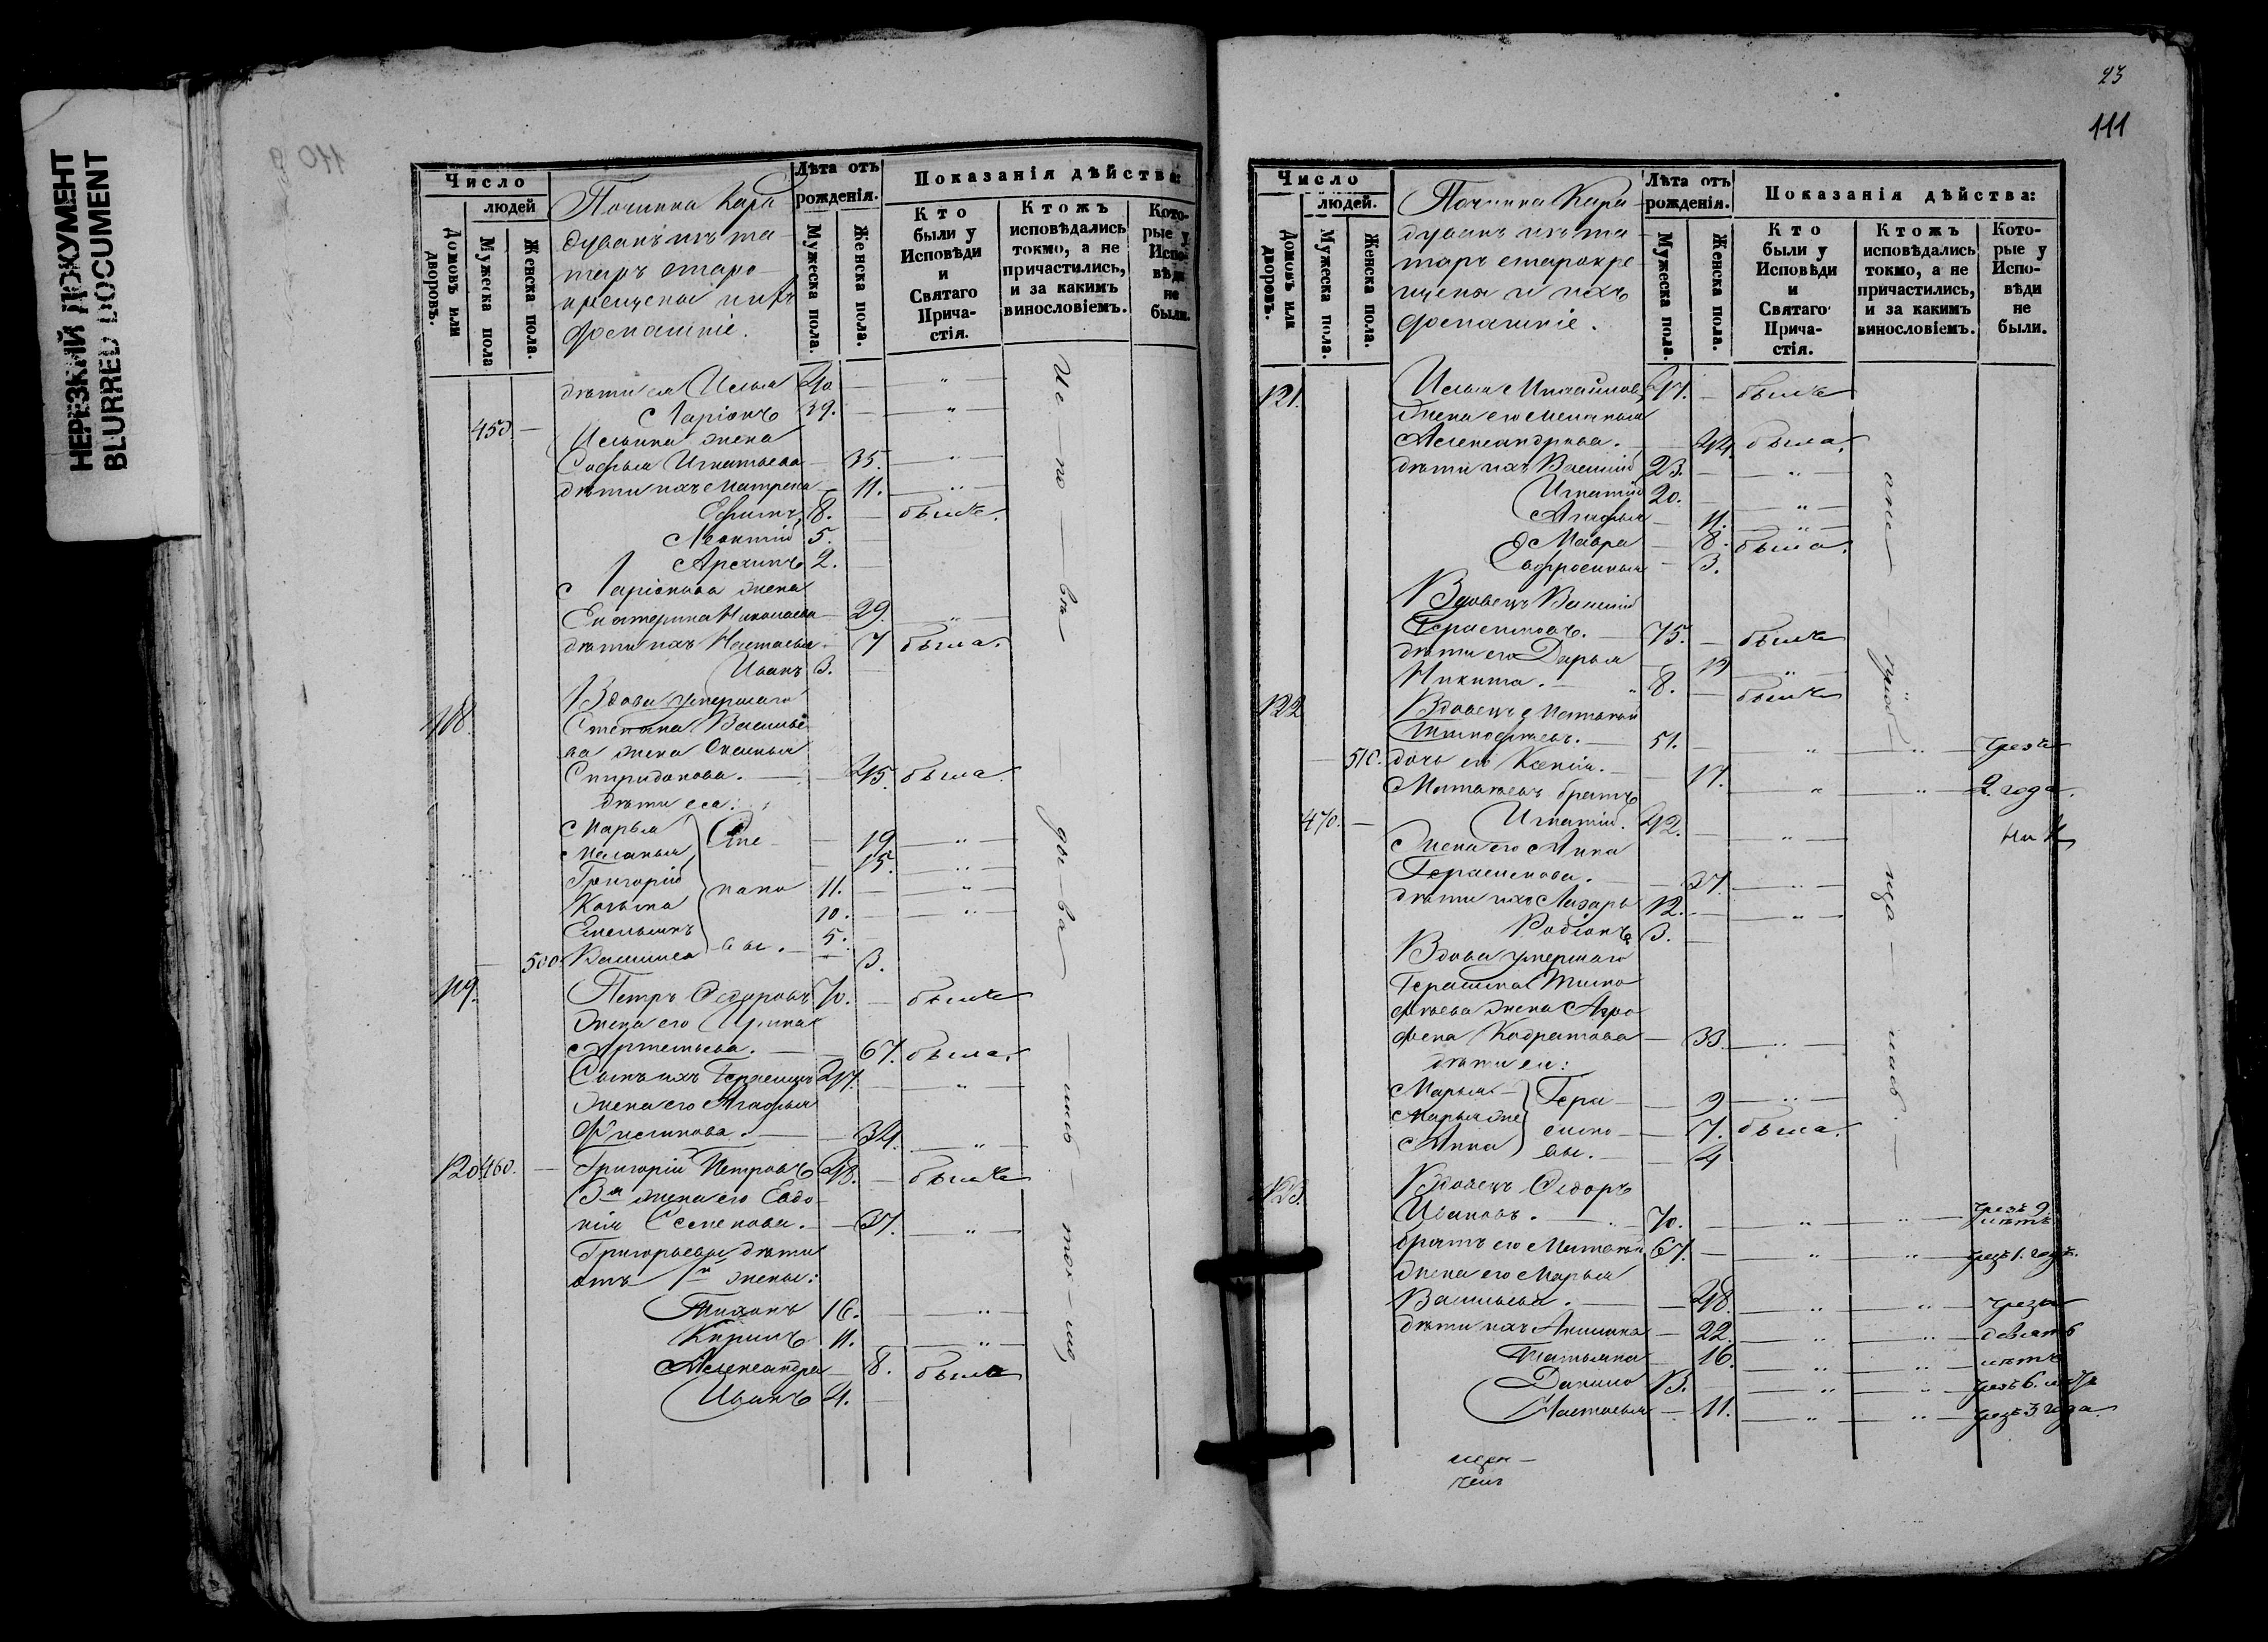 НЕРЕЗКИЙ ДОКУМЕНТ
BLURRED DOCUMENT
Число
людей
Домовъ или дворовъ.
Мужеска пола
Женска пола.
Починка Кара
дуванъ изъ та-
таръ старо-
крещены и ихъ
домашніе.
Лѣта отъ рожденія.
Мужеска пола.
Женска пола.
Показанія дѣйства:
Кто были у Исповѣди и Святаго Причастія.
Ктожъ исповѣдались токмо, а не причастились, и за какимъ винословіемъ.
Которые у Исповѣди не были.
дѣти ея Илья 40 — „ —
450. — Ларіонъ 39. — „ —
Ильина жена
Софья Игнатьева — 35. — „ —
дѣти ихъ Матрена — 11. — „ —
Ефимъ 8. — былъ.
Леонтій 5. —
Архипъ 2. —
Ларіонова жена
Екатерина Николаева — 29. — „ —
дѣти ихъ Настасья — 7 была.
Иванъ 3. —
118. Вдова умершаго
Степана Василье-
ва жена
Спиридонова. — 45. была.
дѣти ея:
Марья Сте — 19 — „ —
Меланья — 15. — „ —
Григорій пано 11. — „ —
Козьма 10. — „ —
Емельянъ вы. 5.
— 500. Васшлиса — 3.
119. Петръ Ѳедоровъ 70. — былъ
жена его Ирина
Артемьева. — 67. была.
Сынъ ихъ Герасимъ 47. — „ —
жена его Агафья
— 34. — „ —
120. 460. — Григорій Петровъ 48. — былъ
2я жена его Евдо-
кія Семенова. — 37. — „ —
Григорьевы дѣти
отъ 1й жены:
Тихонъ 16. — „ —
Кирилъ 11. — „ —
Александра — 8. была
Иванъ 4. —
23
111
Число
людей.
Домовъ или дворовъ.
Мужеска пола.
Женска пола.
Починка Кара-
дуванъ изъ та-
таръ старокре-
щены и ихъ
домашніе.
Лѣта отъ рожденія.
Мужеска пола.
Женска пола.
Показанія дѣйства:
Кто были у Исповѣди и Святаго Причастія.
Ктожъ исповѣдались токмо, а не причастились, и за какимъ винословіемъ.
Которые у Исповѣди не были.
121. Илья Михайловъ 47. — былъ
жена его Меланья
Александрова. — 44. была.
дѣти ихъ Василій 23. — „ —
Игнатій 20. — „ —
Агафья — 11. — „ —
Мавра — 8. была.
Евфросинья — 3.
Вдовецъ Василій
Герасимовъ. — 75. — былъ
дѣти его Дарья — 12 — „ —
Никита. — 8. — былъ
122 Вдовецъ Матвѣй
Тимофѣевъ. — 51. — „ — „ — чрезъ
— 510. дочь его Ксенія. — 17. — „ — „ — 2. года.
Матвѣевъ братъ
470. — Игнатій. 42. — „ —
жена его Анна
Герасимова. — 37. — „ —
дѣти ихъ Лазарь 12. — „ —
Родіонъ 3. —
Вдова умершаго
Герасима Тимо
фѣева жена Агра
фена Кодратова — 33. — „ —
дѣти ея:
Марья — Гера — 9 — „ —
Марья же симо — 7. была.
Анна вы. — 4
123. Вдовецъ Ѳедоръ
Ивановъ. — 70. — „ — „ — чрезъ 9. лѣтъ
братъ его Матвѣй 67. — „ — „ — чрезъ 1. годъ.
жена его Марья
Васильева. — 48. — „ — „ — чрезъ
дѣти ихъ Акилина — 22. — „ — „ — девять
Татьяна — 16. — „ — „ — лѣтъ
Данило 13. — „ — „ — чрезъ 6. лѣтъ
Настасья — 11. — „ — „ — чрезъ 3 года.